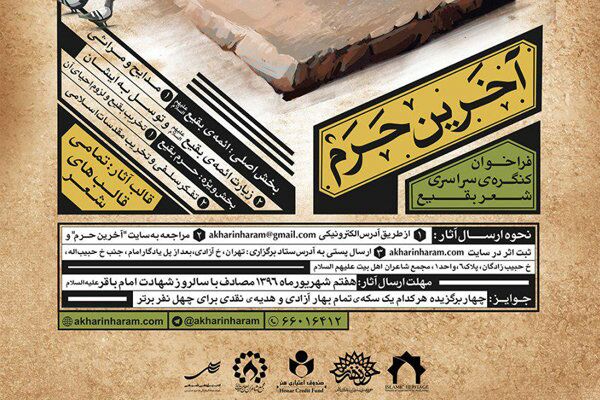 آخرین حرم
فراخوان
کنگره‌ی سراسری
شعر بقیع
بخش اصلی: ائمه‌ی بقیع علیهم السلام
۱ مدایح و مراثی
۲ زیارت ائمه‌ی بقیع علیهم السلام و توسل به ایشان
بخش ویژه: حرم بقیع
۱ تخریب بقیع و لزوم احیای آن
۲ تفکر سلفی و تخریب مقدسات اسلامی
قالب آثار: تمامی
قالب‌های
شعر
نحوه ارسال آثار: ۱ از طریق آدرس الکترونیکی akharinharam@gmail.com ۲ مراجعه به سایت "آخرین حرم" و
ثبت اثر در سایت akharinharam.com ۳ ارسال پستی به آدرس ستاد برگزاری: تهران، خ آزادی، بعد از پل یادگار امام، جنب خ حبیب‌اله،
خ حبیب زادگان، پلاک ۶، واحد ۱، مجمع شاعران اهل بیت علیهم السلام
مهلت ارسال آثار: هفتم شهریور ماه ۱۳۹۶ مصادف با سالروز شهادت امام باقر علیه‌السلام
جوایز: چهار برگزیده هر کدام یک سکه‌ی تمام بهار آزادی و هدیه‌ی نقدی برای چهل نفر برتر
akharinharam.com @akharinharam ۶۶۰۱۶۴۱۲
صندوق اعتباری هنر
Honar Credit Fund
ISLAMIC HERITAGE